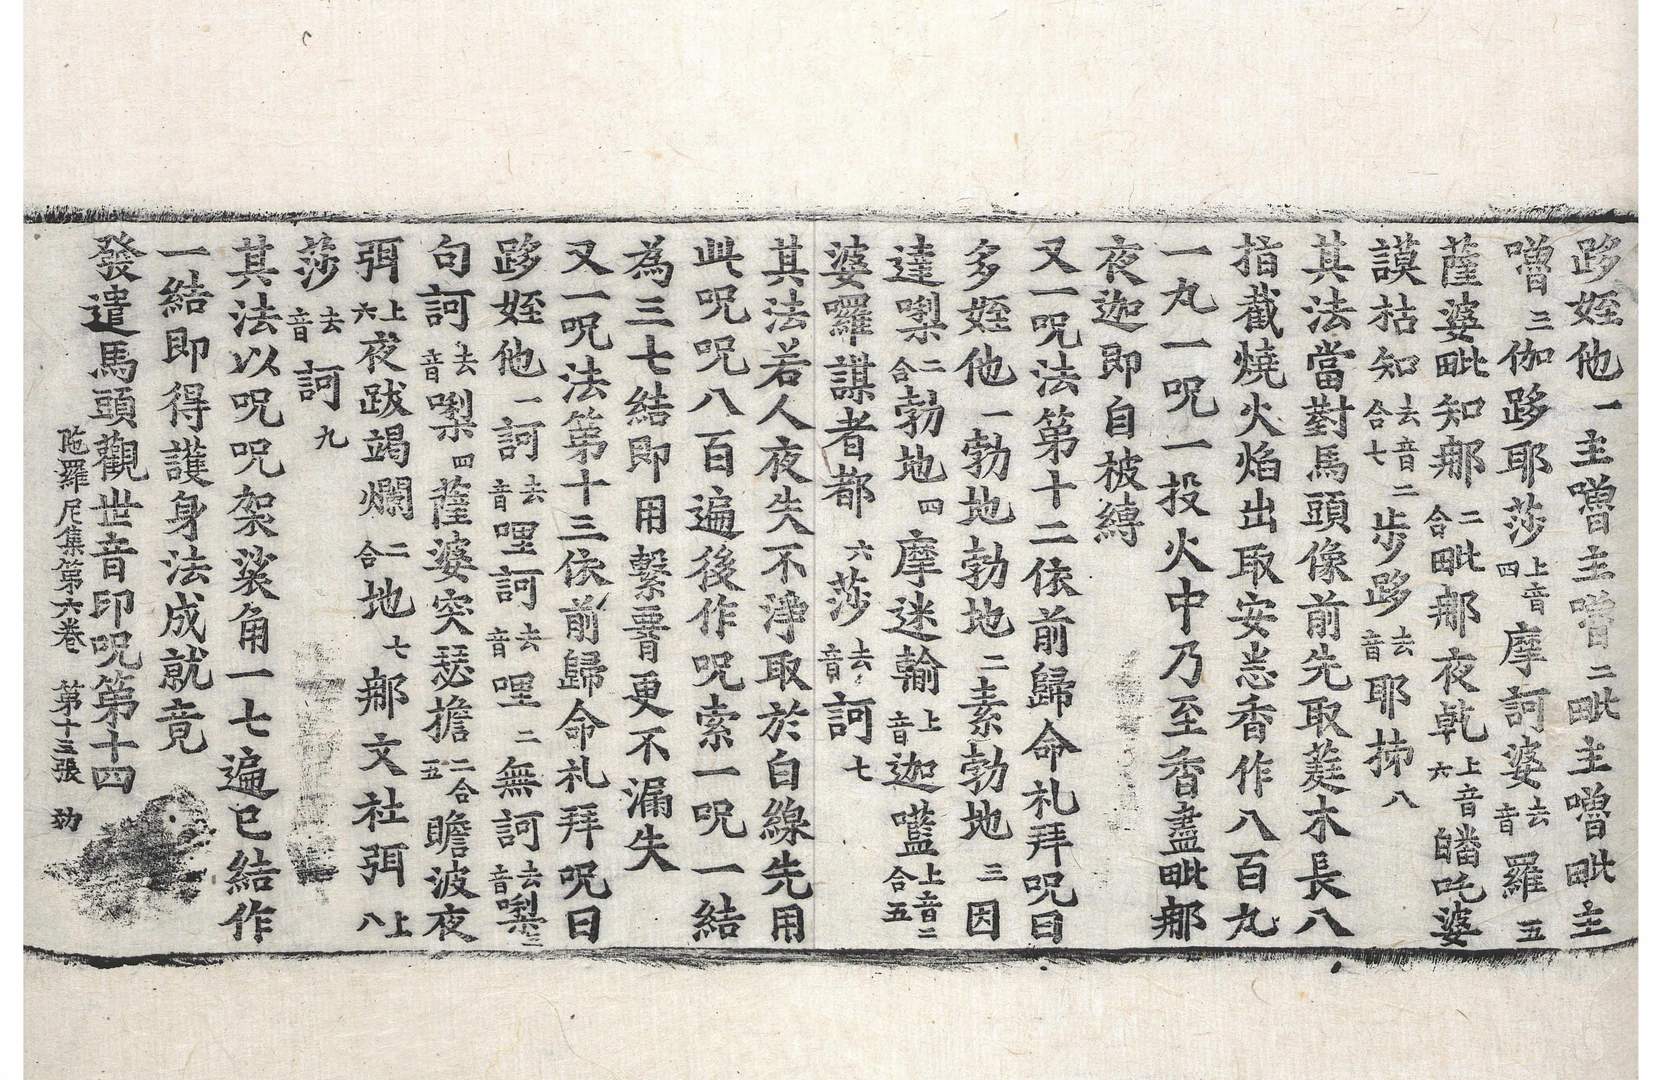 跢姪他一主噌主噌二毗主噌毗主
噌三伽跢耶莎上音四摩訶婆去音羅五
薩婆毗知那二合毗那夜乹上音六皤吒婆
謨枯知去音二合七步跢去音耶抪八
其法當對馬頭像前先取蓰木長八
指截燒火焰出取安悉香作八百丸
一丸一呪一投火中乃至香盡毗那
夜迦即自被縛
又一呪法第十二依前歸命札拜呪曰
多姪他一勃地勃地二素勃地三因
達㗚二合勃地四摩迷輸上音迦㘕上音二合五
婆囉謀者都六莎去音訶七
其法若人夜失不淨取於白線先用
此呪呪八百遍後作呪索一呪一結
為三七結即用繫腰更不漏失
又一呪法第十三依前歸命札拜呪曰
跢姪他一訶去音哩訶去音哩二無訶去音㗚三
句訶去音㗚四薩婆突瑟擔二合五瞻波夜
弭上六夜跋竭爛二合地七那文社弭上八
莎去音訶九
其法以呪呪架裟角一七遍已結作
一結即得護身法成就竟
發遣馬頭觀世音印呪第十四
陁羅尼集第六卷 第十三張 効